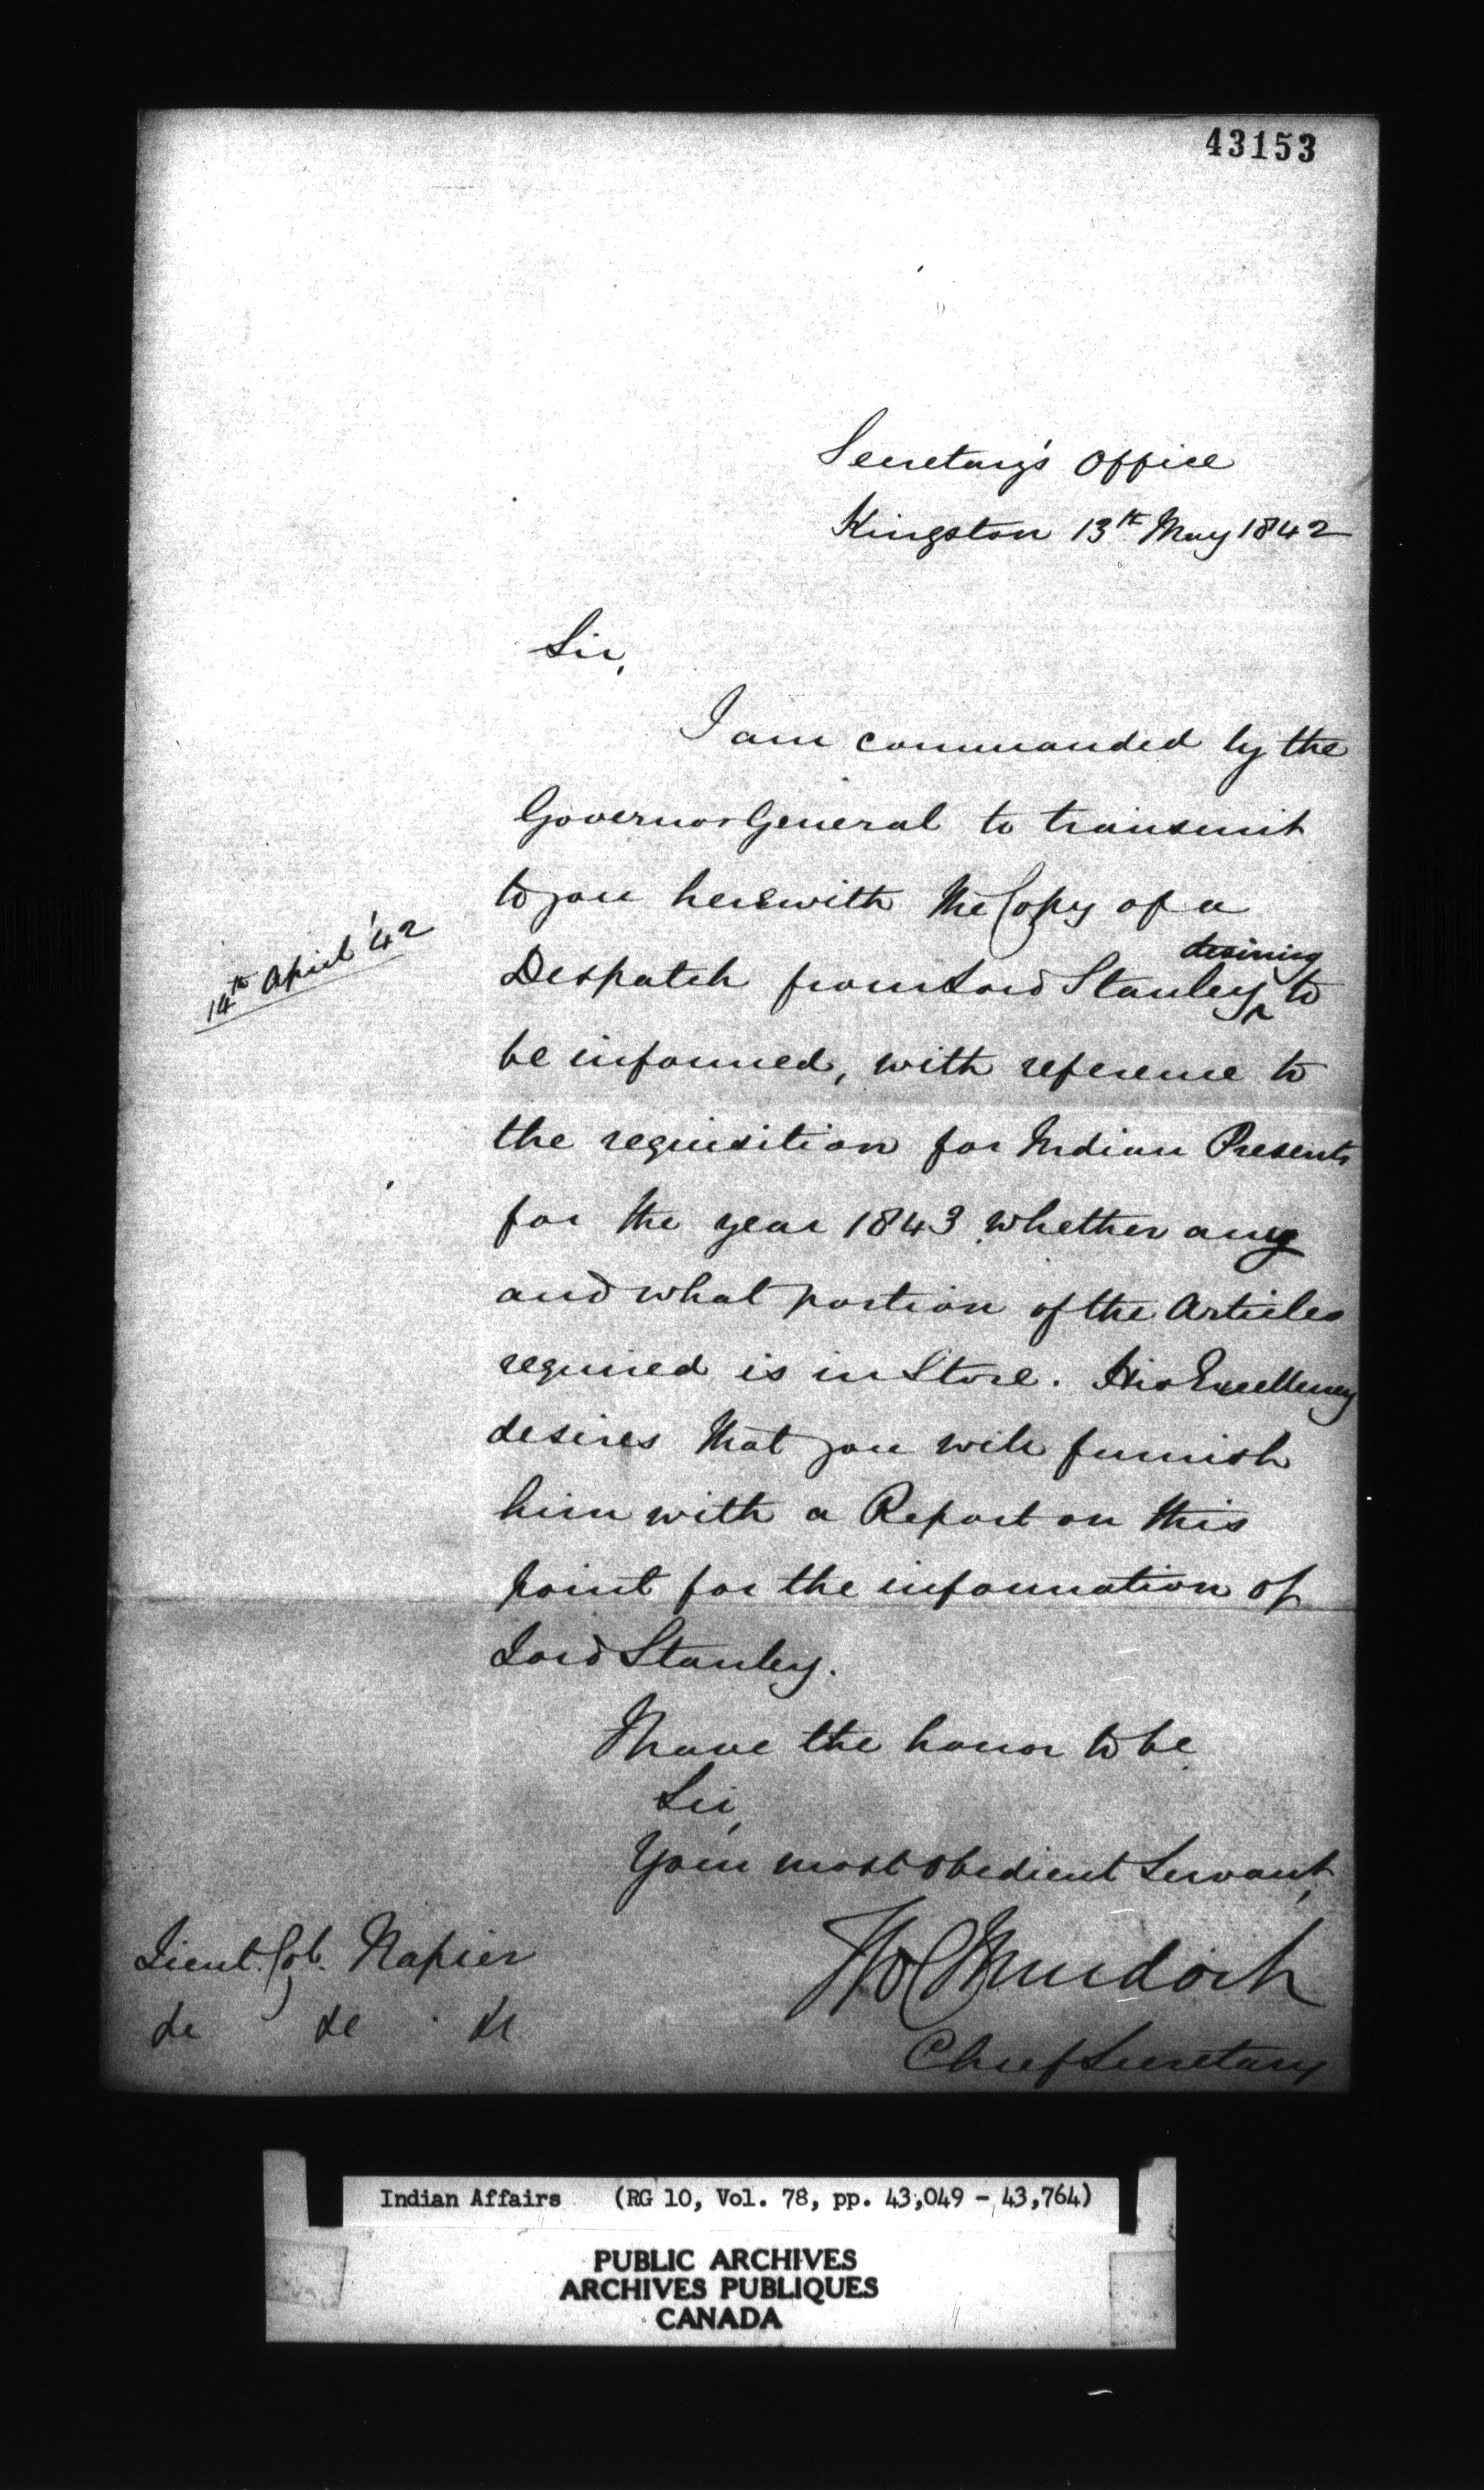 43153
Secretary's Office
Kingston 13th May 1842
Sir,
I am commanded by the
Governor General to transmit
to you herewith the Copy of a
14th April '42
desiring
Despatch from Lord Stanley ^ to
be informed, with reference to
the requisition for Indian Presents
for the year 1843 whether any
and what portion of the Articles
required is in Store. His Excellency
desires that you will furnish
him with a Report on this
point for the information of
Lord Stanley.
I have the honor to be
Sir,
Your most obedient Servant,
T W C Murdoch
Chief Secretary
Lieut. Col. Napier
&c &c &c
Indian Affairs (RG 10, Vol. 78, pp. 43,049 - 43,764)
PUBLIC ARCHIVES
ARCHIVES PUBLIQUES
CANADA